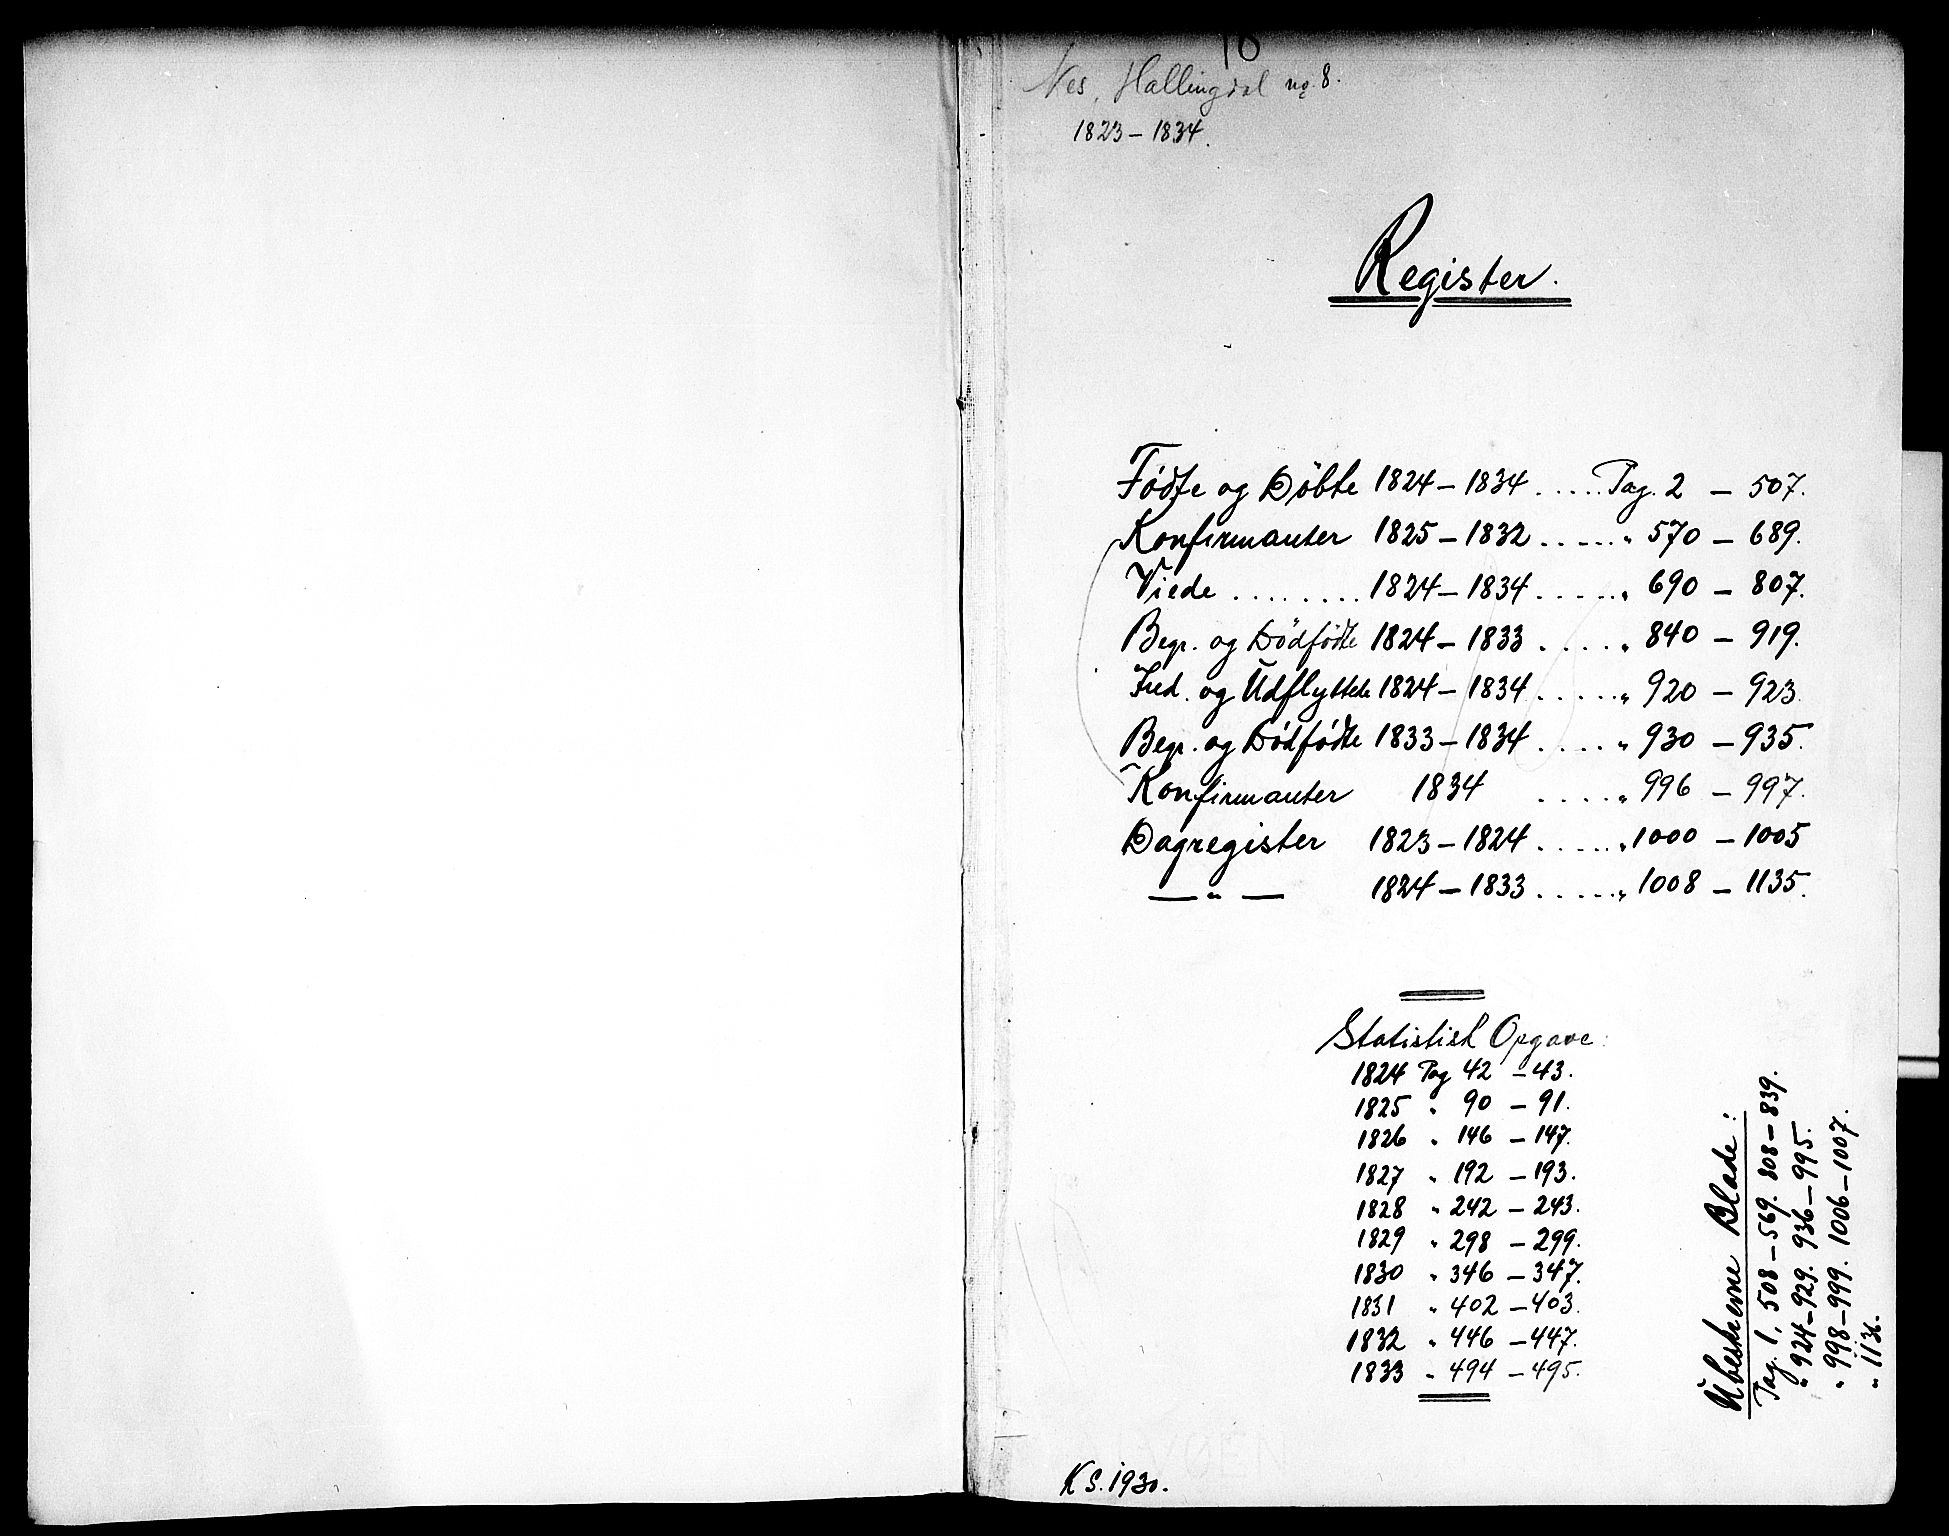 10
Nes, Hallingdal no. 8.
1823 – 1834.
Register.
Fødte og Døbte 1824 – 1834 ..... Pag. 2 – 507.
Konfirmanter 1825 – 1832 ..... " 570 – 689.
Viede ........ 1824 – 1834 ..... " 690 – 807.
Begr. og Dødfødte 1824 – 1833 ..... " 840 – 919.
Ind. og Udflyttede 1824 – 1834 ..... " 920 – 923
Begr. og Dødfødte 1833 – 1834 ..... " 930 – 935.
Konfirmanter 1834 ..... " 996 – 997.
Dagregister 1823 – 1824 ..... " 1000 – 1005
— " — 1824 – 1833 ..... " 1008 – 1135.
Statistisk Opgave:
1824 Pag 42 – 43.
1825 " 90 – 91.
1826 " 146 – 147.
1827 " 192 – 193.
1828 " 242 – 243.
1829 " 298 – 299.
1830 " 346 – 347.
1831 " 402 – 403.
1832 " 446 – 447.
1833 " 494 – 495.
Ubeskrevne Blade:
Pag. 1, 508 – 569. 808 – 839.
" 924 – 929. 936 – 995.
" 998 – 999. 1006 – 1007.
" 1136.
K S. 1930.